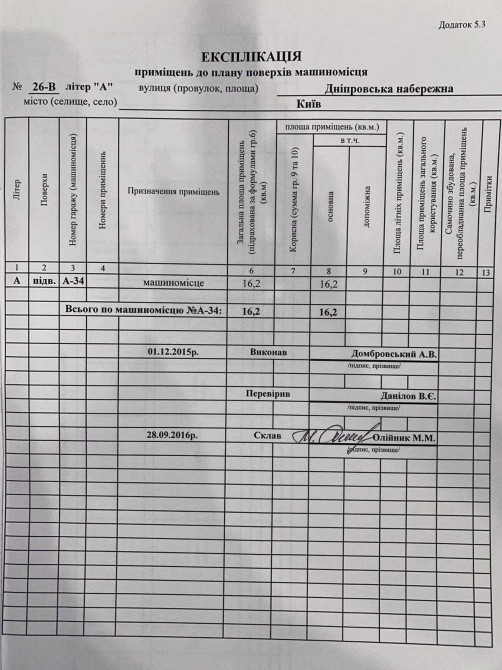 Додаток 5.3
ЕКСПЛІКАЦІЯ
приміщень до плану поверхів машиномісця
№ 26-В літер "А" вулиця (провулок, площа) Дніпровська набережна
місто (селище, село) Київ
Літер
Поверхи
Номер гаражу (машиномісця)
Номери приміщеннь
Призначення приміщень
Загальна площа приміщень (підрахована за формулами гр.6) (кв.м)
площа приміщень (кв.м.)
Корисна (сумма гр. 9 та 10)
в т.ч.
основна
допоміжна
Площа літніх приміщень (кв.м.)
Площа приміщень загального користування (кв.м.)
Самочино збудована, переобладнана площа приміщень (кв.м.)
Примітки
1 2 3 4 6 7 8 9 10 11 12 13
А підв. А-34 машиномісце 16,2 16,2
Всього по машиномісцю №А-34: 16,2 16,2
01.12.2015р. Виконав Домбровський А.В.
/підпис, прізвище/
Перевірив Данілов В.Є.
/підпис, прізвище/
28.09.2016р. Склав Олійник М.М.
/підпис, прізвище/